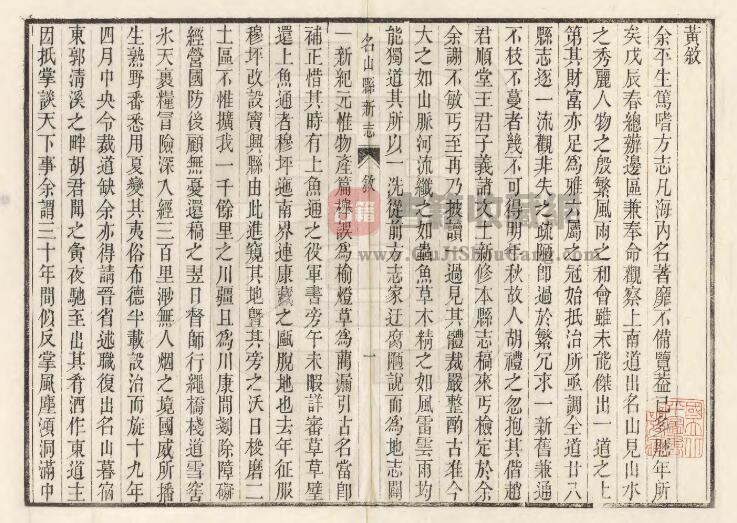 黃敘
余平生篤嗜方志凡海內名著靡不備覽葢已多歷年所
矣戊辰春總辦邊區兼奉命觀察上南道出名山見山水
之秀麗人物之殷繁風雨之和會雖未能傑出一道之上
第其財富亦足為雅州屬之冠始抵治所亟調全道廿八
縣志逐一流觀非失之疏陋卽過於繁冗求一新舊兼通
不枝不蔓者幾不可得明年秋故人胡禮之忽抱其偕趙
君順堂王君子義諸文士新修本縣志稿來丐檢定於余
余謝不敏丐至再乃披讀一過見其體裁嚴整酌古準今
大之如山脈河流纖之如蟲魚草木精之如風雷雲雨均
能獨道其所以一洗從前方志家迂腐陋說而為地志闢
名山縣新志
敘
一
一新紀元惟物產篇樣誤為榆燈草為藺漏引古名當卽
補正惜其時有上魚通之役軍書旁午未暇詳審草草璧
還上魚通者穆坪迤南界連康藏之甌脫地也去年征服
穆坪改設寶興縣由此進窺其地曁其旁之沃日梭磨二
土區不惟擴我一千餘里之川疆且為川康間剗除障礙
經營國防後顧無憂還稿之翌日督師行繩橋棧道雪窖
氷天裹糧冒險深入經三百里渺無人烟之境國威所播
生熟野番悉用夏變其夷俗布德半載設治而旋十九年
四月中央令裁道缺余亦得請晉省述職復出名山暮宿
東郭淸溪之畔胡君聞之夤夜馳至出其肴酒作東道主
因抵掌談天下事余謂三十年間似反掌風塵澒洞滿中
古籍
书籍收藏网
www.GuJiShuCang.com